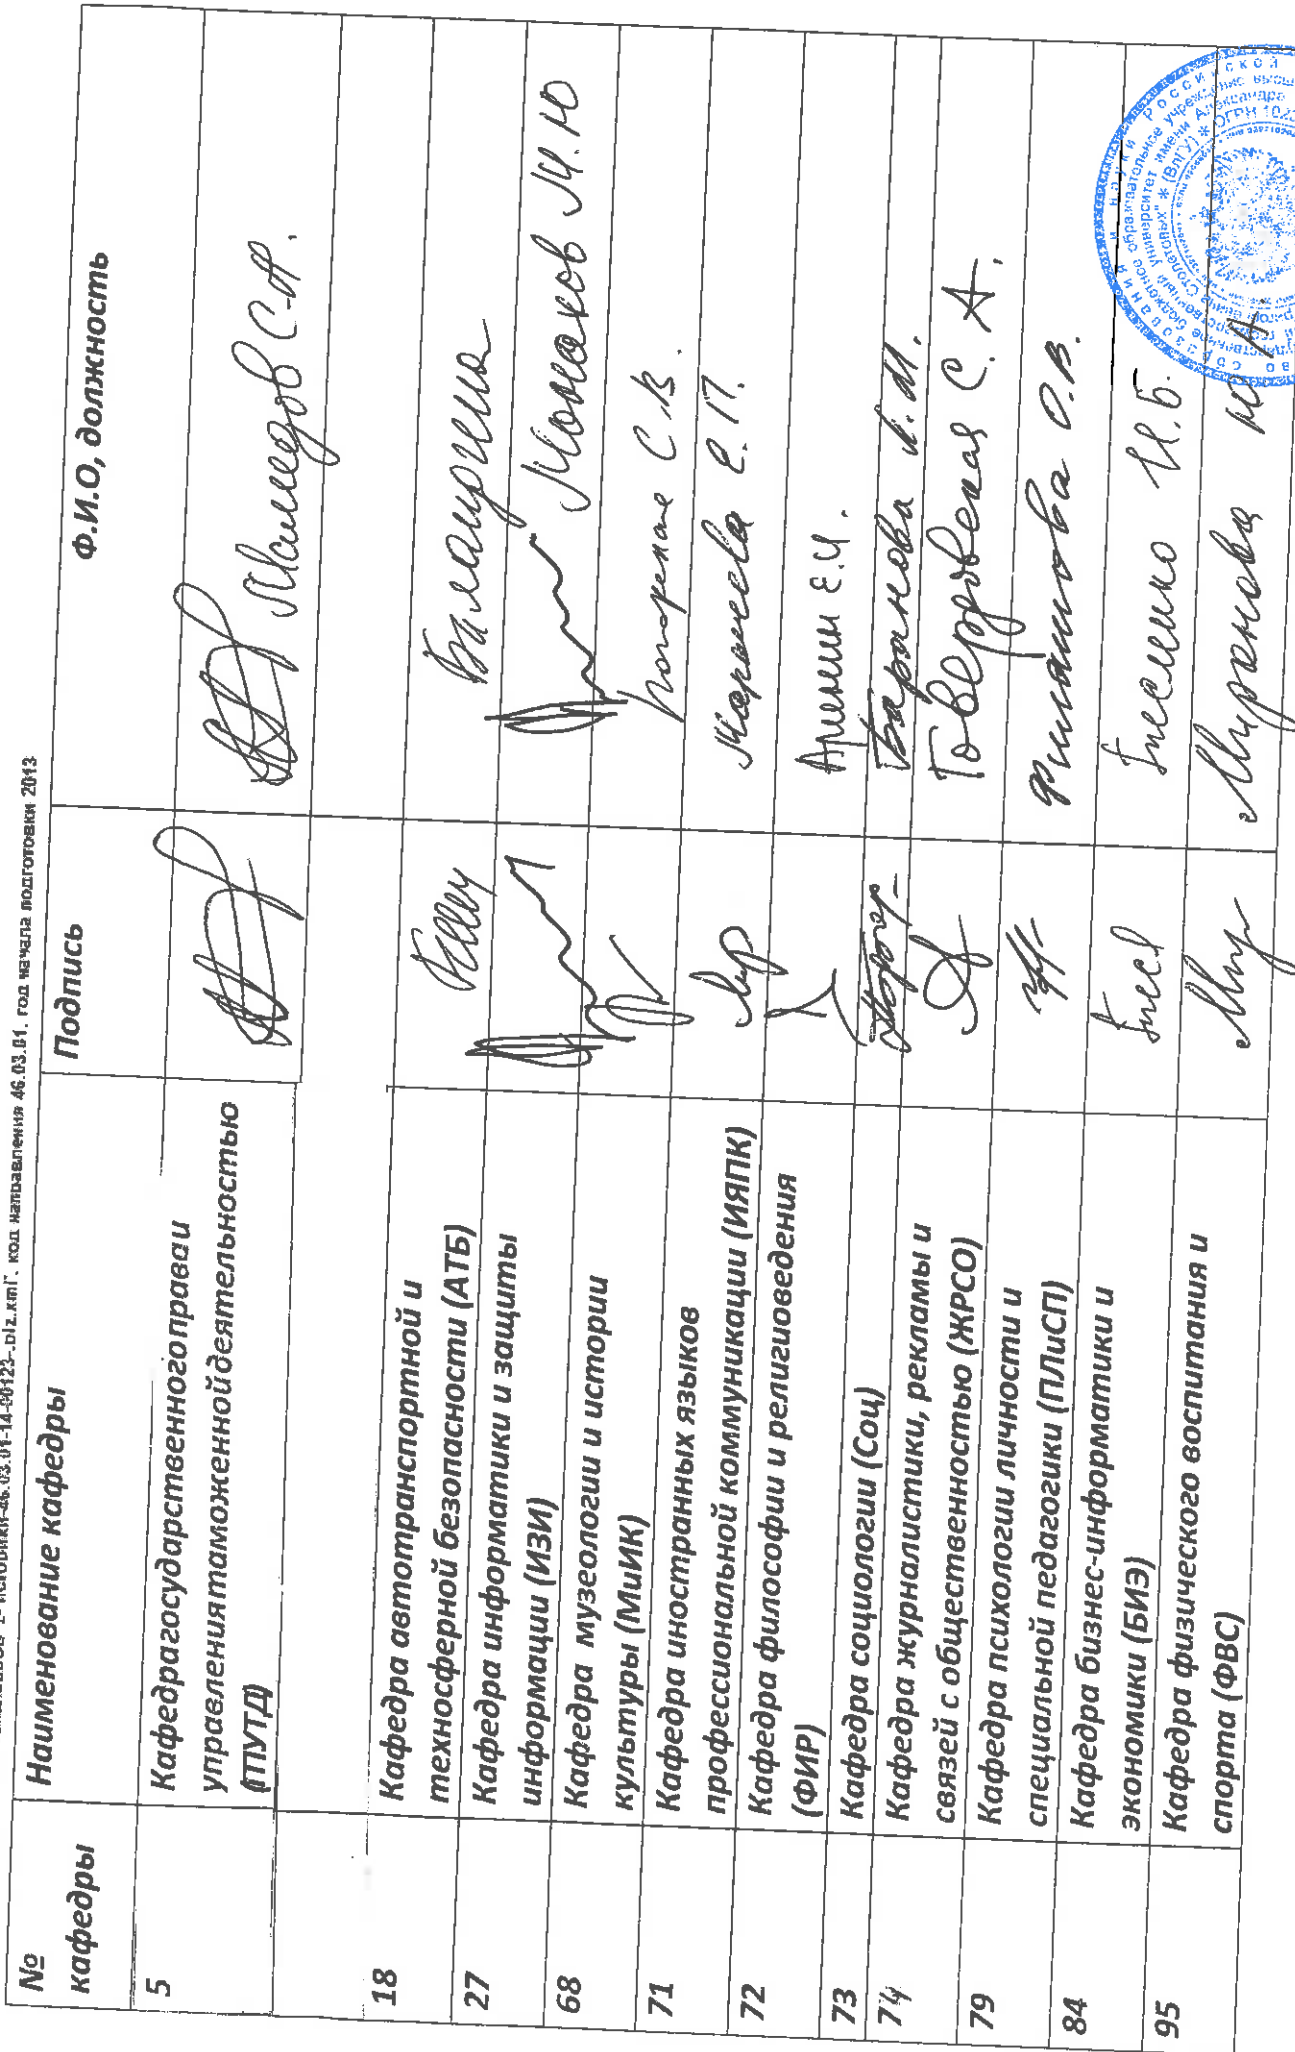 46.03.01-14-00123-.plz.xml". код направления 46.03.01. год начала подготовки 2013
№ кафедры
Наименование кафедры
Подпись
Ф.И.О, должность
5
Кафедрагосударственногоправаи
управлениятаможеннойдеятельностью
(ГПУТД)
Мамедов С.А.
18
Кафедра автотранспортной и
техносферной безопасности (АТБ)
27
Кафедра информатики и защиты
информации (ИЗИ)
Монахов М.Ю
68
Кафедра музеологии и истории
культуры (МиИК)
С.В.
71
Кафедра иностранных языков
профессиональной коммуникации (ИЯПК)
Марычева Е.П.
72
Кафедра философии и религиоведения
(ФИР)
Аринин Е.И.
73
Кафедра социологии (Соц)
Баранова
74
Кафедра журналистики, рекламы и
связей с общественностью (ЖРСО)
С. А.
79
Кафедра психологии личности и
специальной педагогики (ПЛиСП)
Филатова О.В.
84
Кафедра бизнес-информатики и
экономики (БИЭ)
И.Б.
95
Кафедра физического воспитания и
спорта (ФВС)
Миронова